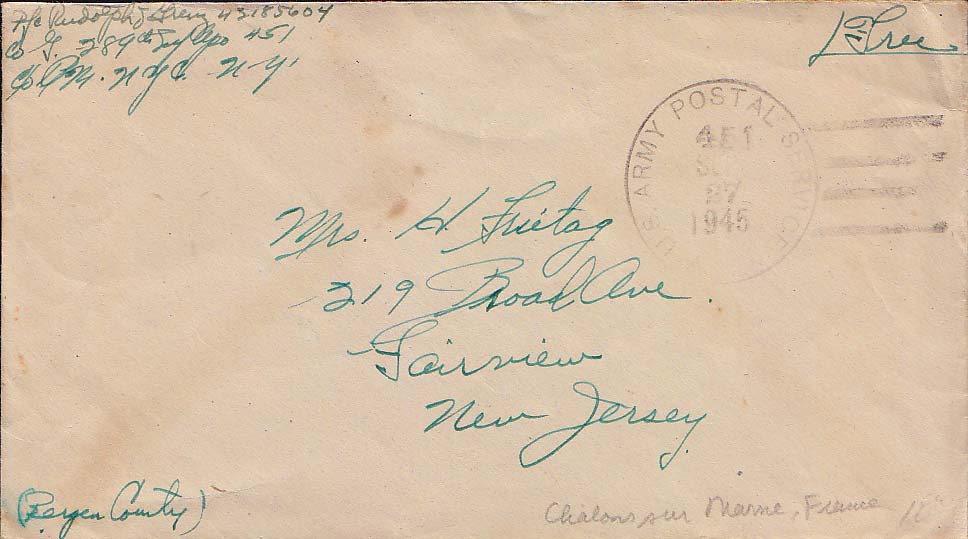 Pfc Rudolph J 42185604
Co G. 289th Inf Apo 451
c/o P.M. N.Y.C. N.Y.
Free
U.S. ARMY POSTAL SERVICE
451
27
1945
Mrs. H Frietag
219 Broad Ave.
Fairview
New Jersey
(Bergen County)
Chalons sur Marne, France